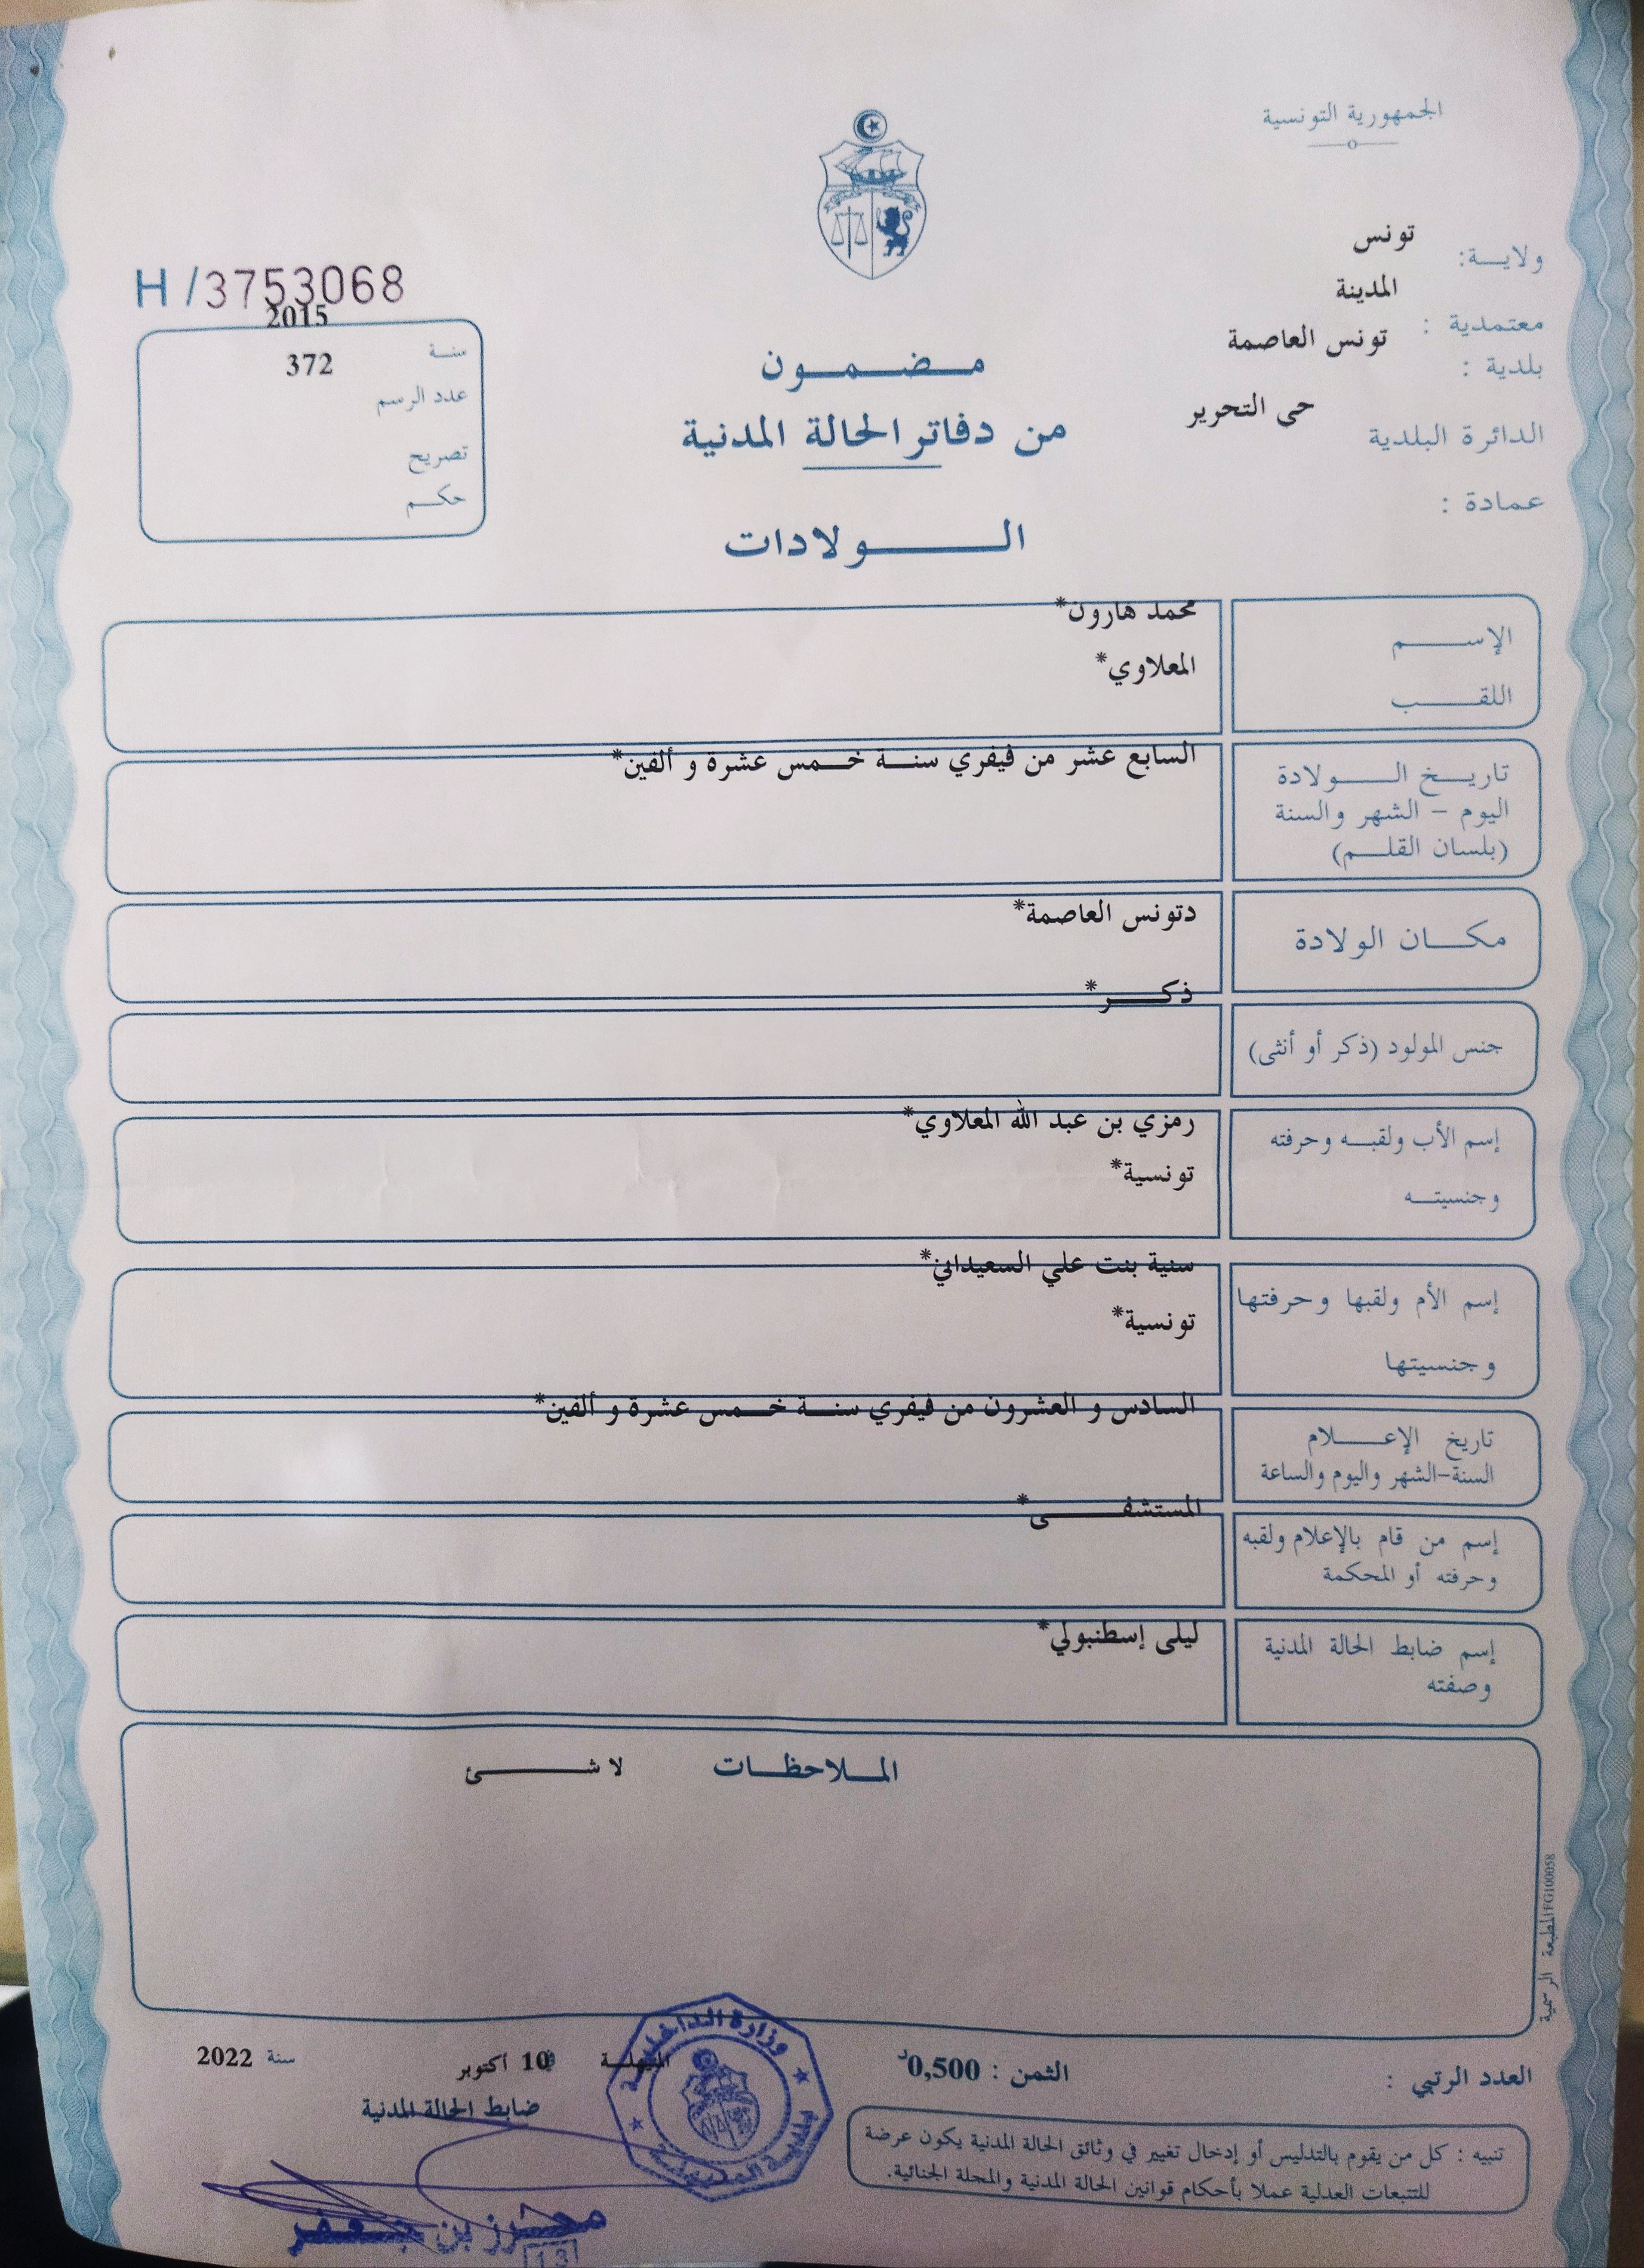 الجمهورية التونسية
ولايـــة: تونس
معتمدية : المدينة
بلدية : تونس العاصمة
الدائرة البلدية حى التحرير
عمادة :
H/3753068
سنة 2015
عدد الرسم 372
تصريح
حكم
مضمون
من دفاتر الحالة المدنية
الولادات
الإسم محمد هارون*
اللقب المعلاوي*
تاريخ الولادة السابع عشر من فيفري سنة خمس عشرة و ألفين*
اليوم - الشهر والسنة
(بلسان القلم)
مكان الولادة دتونس العاصمة*
جنس المولود (ذكر أو أنثى) ذكر*
إسم الأب ولقبه وحرفته رمزي بن عبد الله المعلاوي*
وجنسيته تونسية*
إسم الأم ولقبها وحرفتها سنية بنت علي السعيداني*
وجنسيتها تونسية*
تاريخ الإعلام السادس و العشرون من فيفري سنة خمس عشرة و ألفين*
السنة-الشهر واليوم والساعة
إسم من قام بالإعلام ولقبه المستشفى*
وحرفته أو المحكمة
إسم ضابط الحالة المدنية ليلى إسطنبولي*
وصفته
الملاحظات لا شئ
المطبعة الرسمية FG100058
العدد الرتبي :
الثمن : 0,500د
10 أكتوبر سنة 2022
ضابط الحالة المدنية
وزارة الداخلية
محرز بن جعفر
13
تنبيه : كل من يقوم بالتدليس أو إدخال تغيير في وثائق الحالة المدنية يكون عرضة
للتتبعات العدلية عملا بأحكام قوانين الحالة المدنية والمجلة الجنائية.